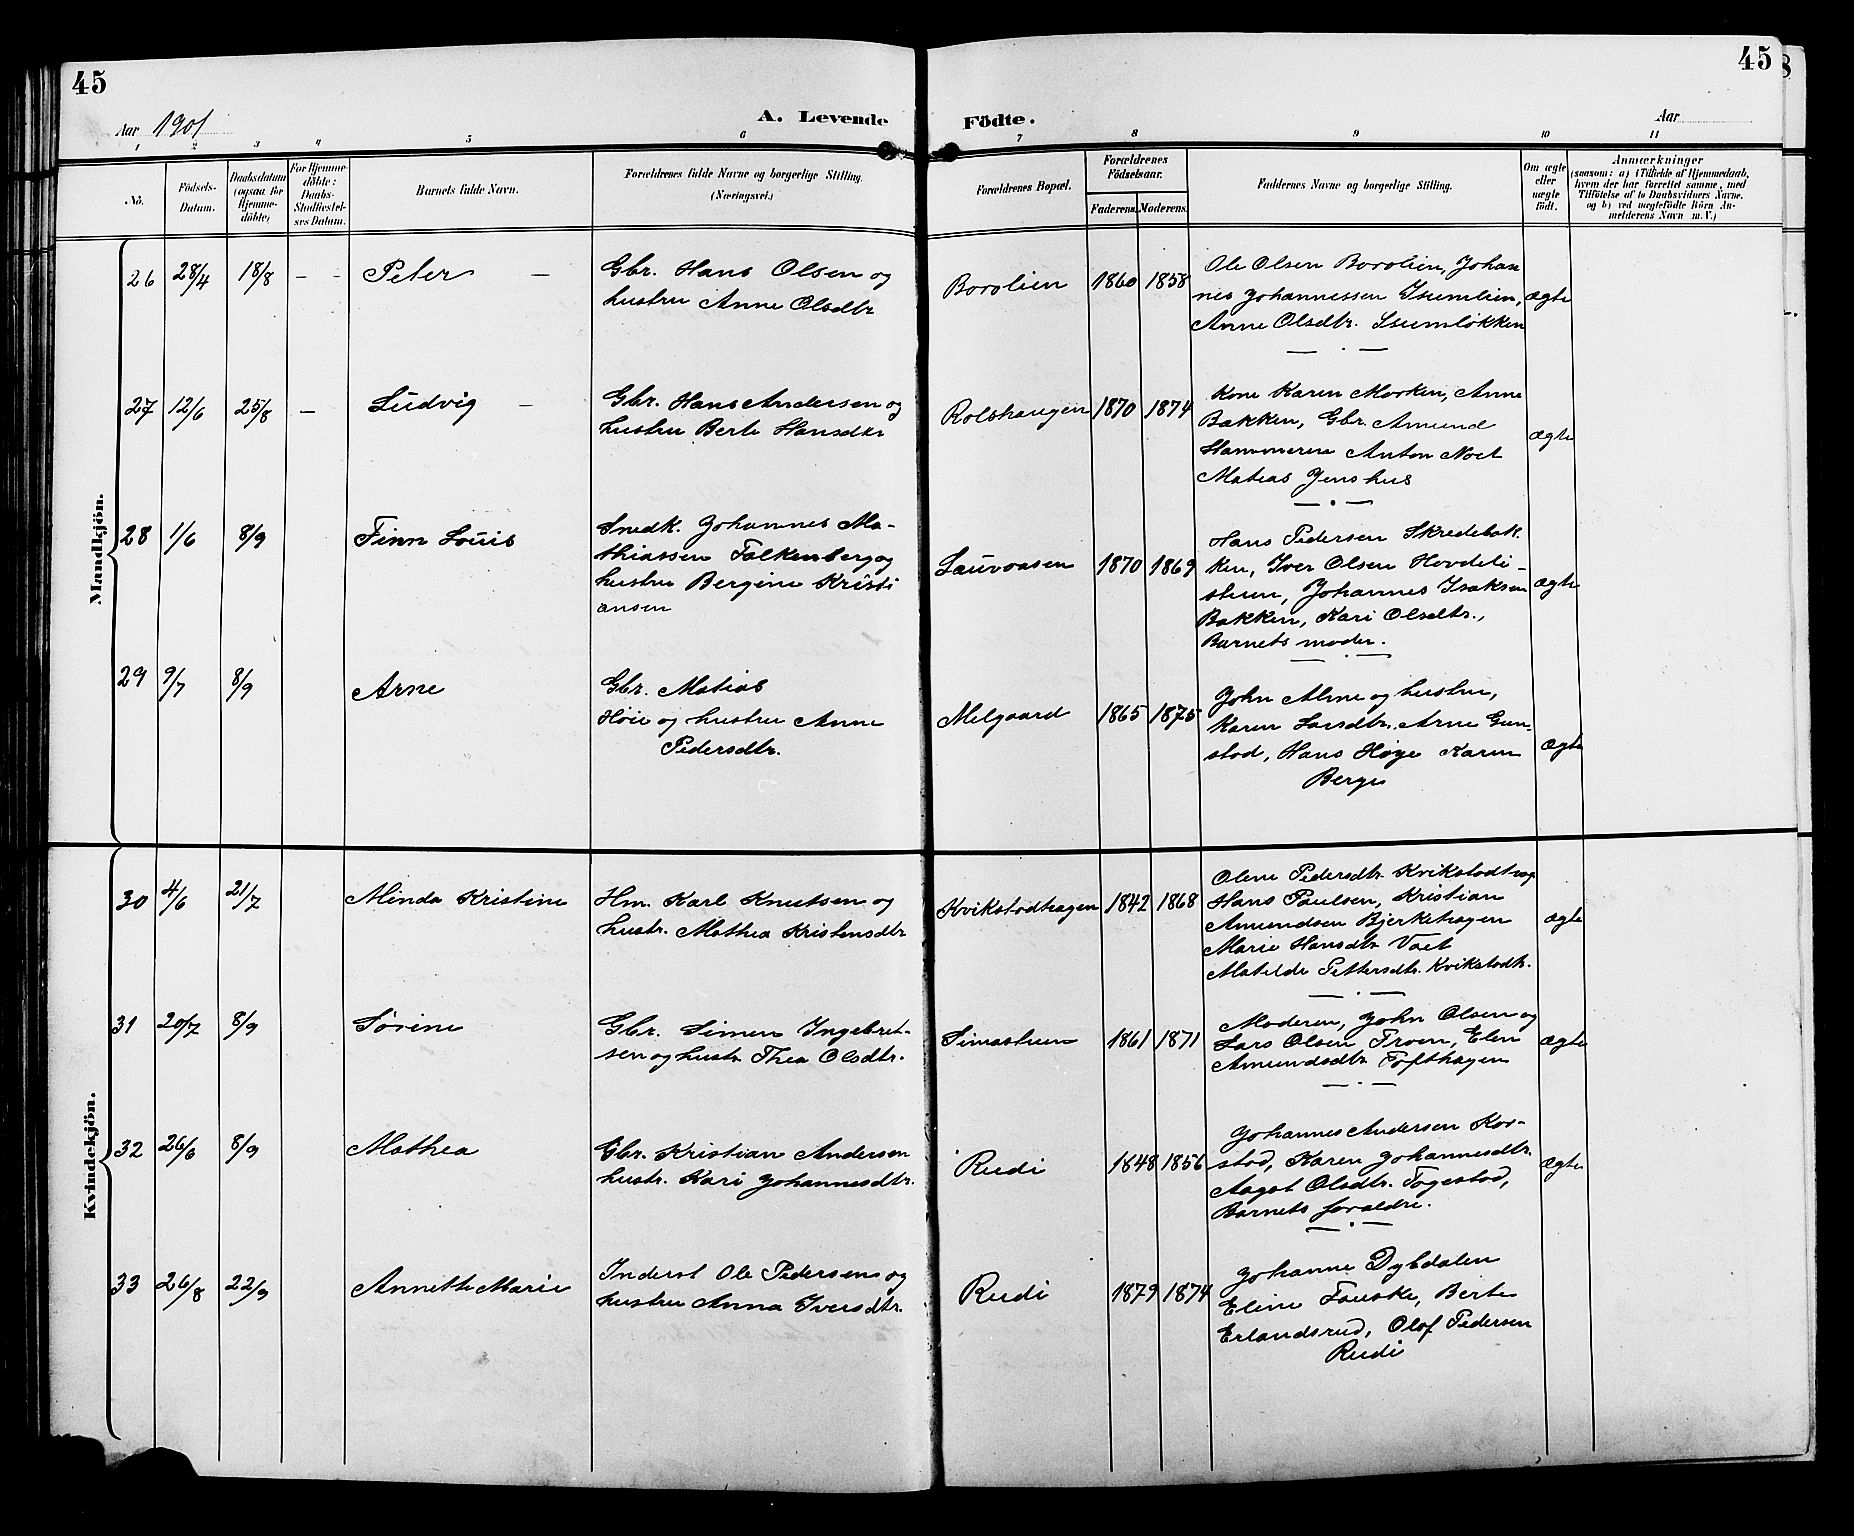 45
45
Aar 1901
A. Levende
Födte.
Aar
1 2 3 4 5 6 7 8 9 10 11
No.
Födsels-
Datum.
Daabsdatum
(ogsaa for
Hjemme-
döbte)
For Hjemme-
döbte:
Daabs-
Stadfæstel-
ses Datum.
Barnets fulde Navn.
Forældrenes fulde Navne og borgerlige Stilling.
(Næringsvei.)
Forældrenes Bopæl.
Forældrenes
Födselsaar.
Faderens. Moderens.
Faddernes Navne og borgerlige Stilling.
Om ægte
eller
uægte
födt.
Anmærkninger
(saasom: a) i Tilfælde af Hjemmedaab,
hvem der har forrettet samme, med
Tilföielse af to Daabsvidners Navne.
og b) ved uægtefödte Börn An-
melderens Navn m. V.)
Mandkjön.
26 28/4 18/8 – – Peter –
Gbr. Hans Olsen og
hustru Anne Olsdtr
Borolien 1860 1858
Ole Olsen Borolien, Johan
nes Johannessen Isumlien,
Anne Olsdtr. Isumløkken
ægte
27 12/6 25/8 – Ludvig –
Gbr. Hans Andersen og
hustru Berte Hansdtr
Rolshaugen 1870 1874
Kone Karen Morken, Anne
Bakken, Gbr. Amund
Anton
Matias Jenshus
ægte
28 1/6 8/9 Finn Louis
Snedk. Johannes Ma-
thiassen Falkenberg og
hustru Bergine Kristi
ansen
Lauvaasen 1870 1869
Hans Pedersen Skredebak
ken, Iver Olsen Hovdeli-
stuen, Johannes Isaksen
Bakken, Kari Olsdtr.,
Barnets moder.
ægte
29 9/7 8/9 Arne
Gbr. Matias
Høie og hustru Anne
Pedersdtr.
Melgaard 1865 1875
John Alme og hustru,
Karen Larsdtr. Arne Gun-
stad, Hans Høye Karen
Berge
ægte
Kvindekjön.
30 4/6 21/7 Minda Kristine
Hm. Karl Knutsen og
hustr. Mathea Kristensdtr
Kvikstadhagen 1842 1868
Olene Pedersdtr Kvikstadhag
Hans Paulsen, Kristian
Amundsen Bjerkehagen
Marie Hansdtr
Matilde Pettersdtr. Kvikstadh.
ægte
31 20/7 8/9 Sørine
Gbr. Simen Ingebret-
sen og hustr. Thea Olsdtr.
Simastuen 1861 1871
Moderen, John Olsen og
Lars Olsen Troen, Elen
Amundsdtr Tofthagen
ægte
32 26/6 8/9 Mathea
Gbr. Kristian Andersen
hustr. Kari Johannesdtr.
Rudi 1848 1856
Johannes Andersen Kor-
stad, Karen Johannesdtr.
Aagot Olsdtr. Fogestad,
Barnets foraldre.
ægte
33 26/8 22/9 Annette Marie
Inderst Ole Pedersen og
hustru Anna Iversdtr.
Rudi 1879 1874
Johanne Dybdalen
Eline Fauske, Berte
Erlandsrud, Olof Pedersen
Rudi